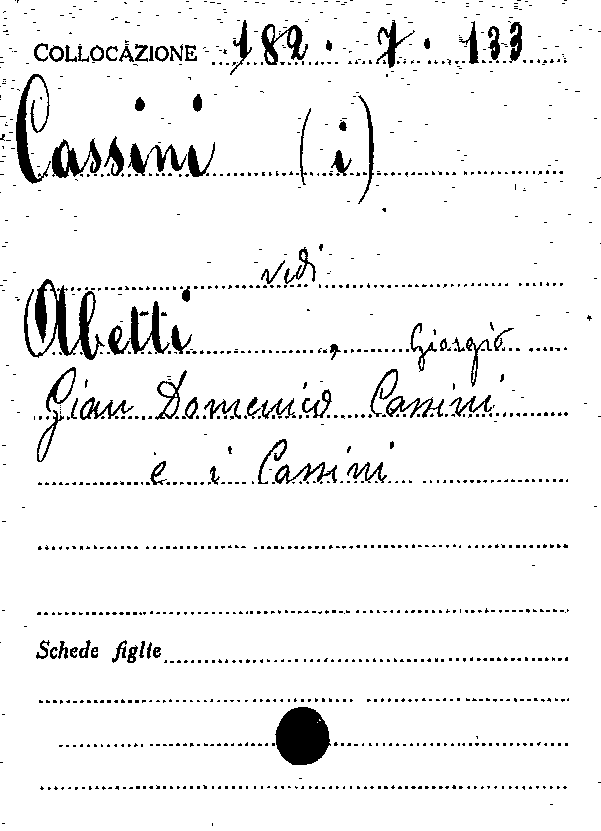 COLLOCAZIONE 182. 7. 133
Cassini (i)
vedi
Abetti, Giorgio
Gian Domenico Cassini
e i Cassini
Schede figlie